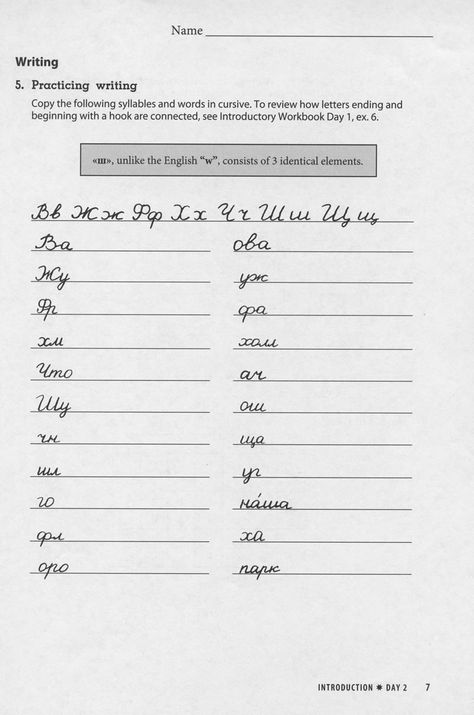 Name
Writing
5. Practicing writing
Copy the following syllables and words in cursive. To review how letters ending and
beginning with a hook are connected, see Introductory Workbook Day 1, ex. 6.
«ш», unlike the English “w”, consists of 3 identical elements.
Вв Жж Фф Хх Чч Шш Щщ
Ва ова
Жу уж
Фр фа
хм холм
Что ач
Шу ош
чн ща
шл уг
го на́ша
фл ха
оро парк
INTRODUCTION ✷ DAY 2 7